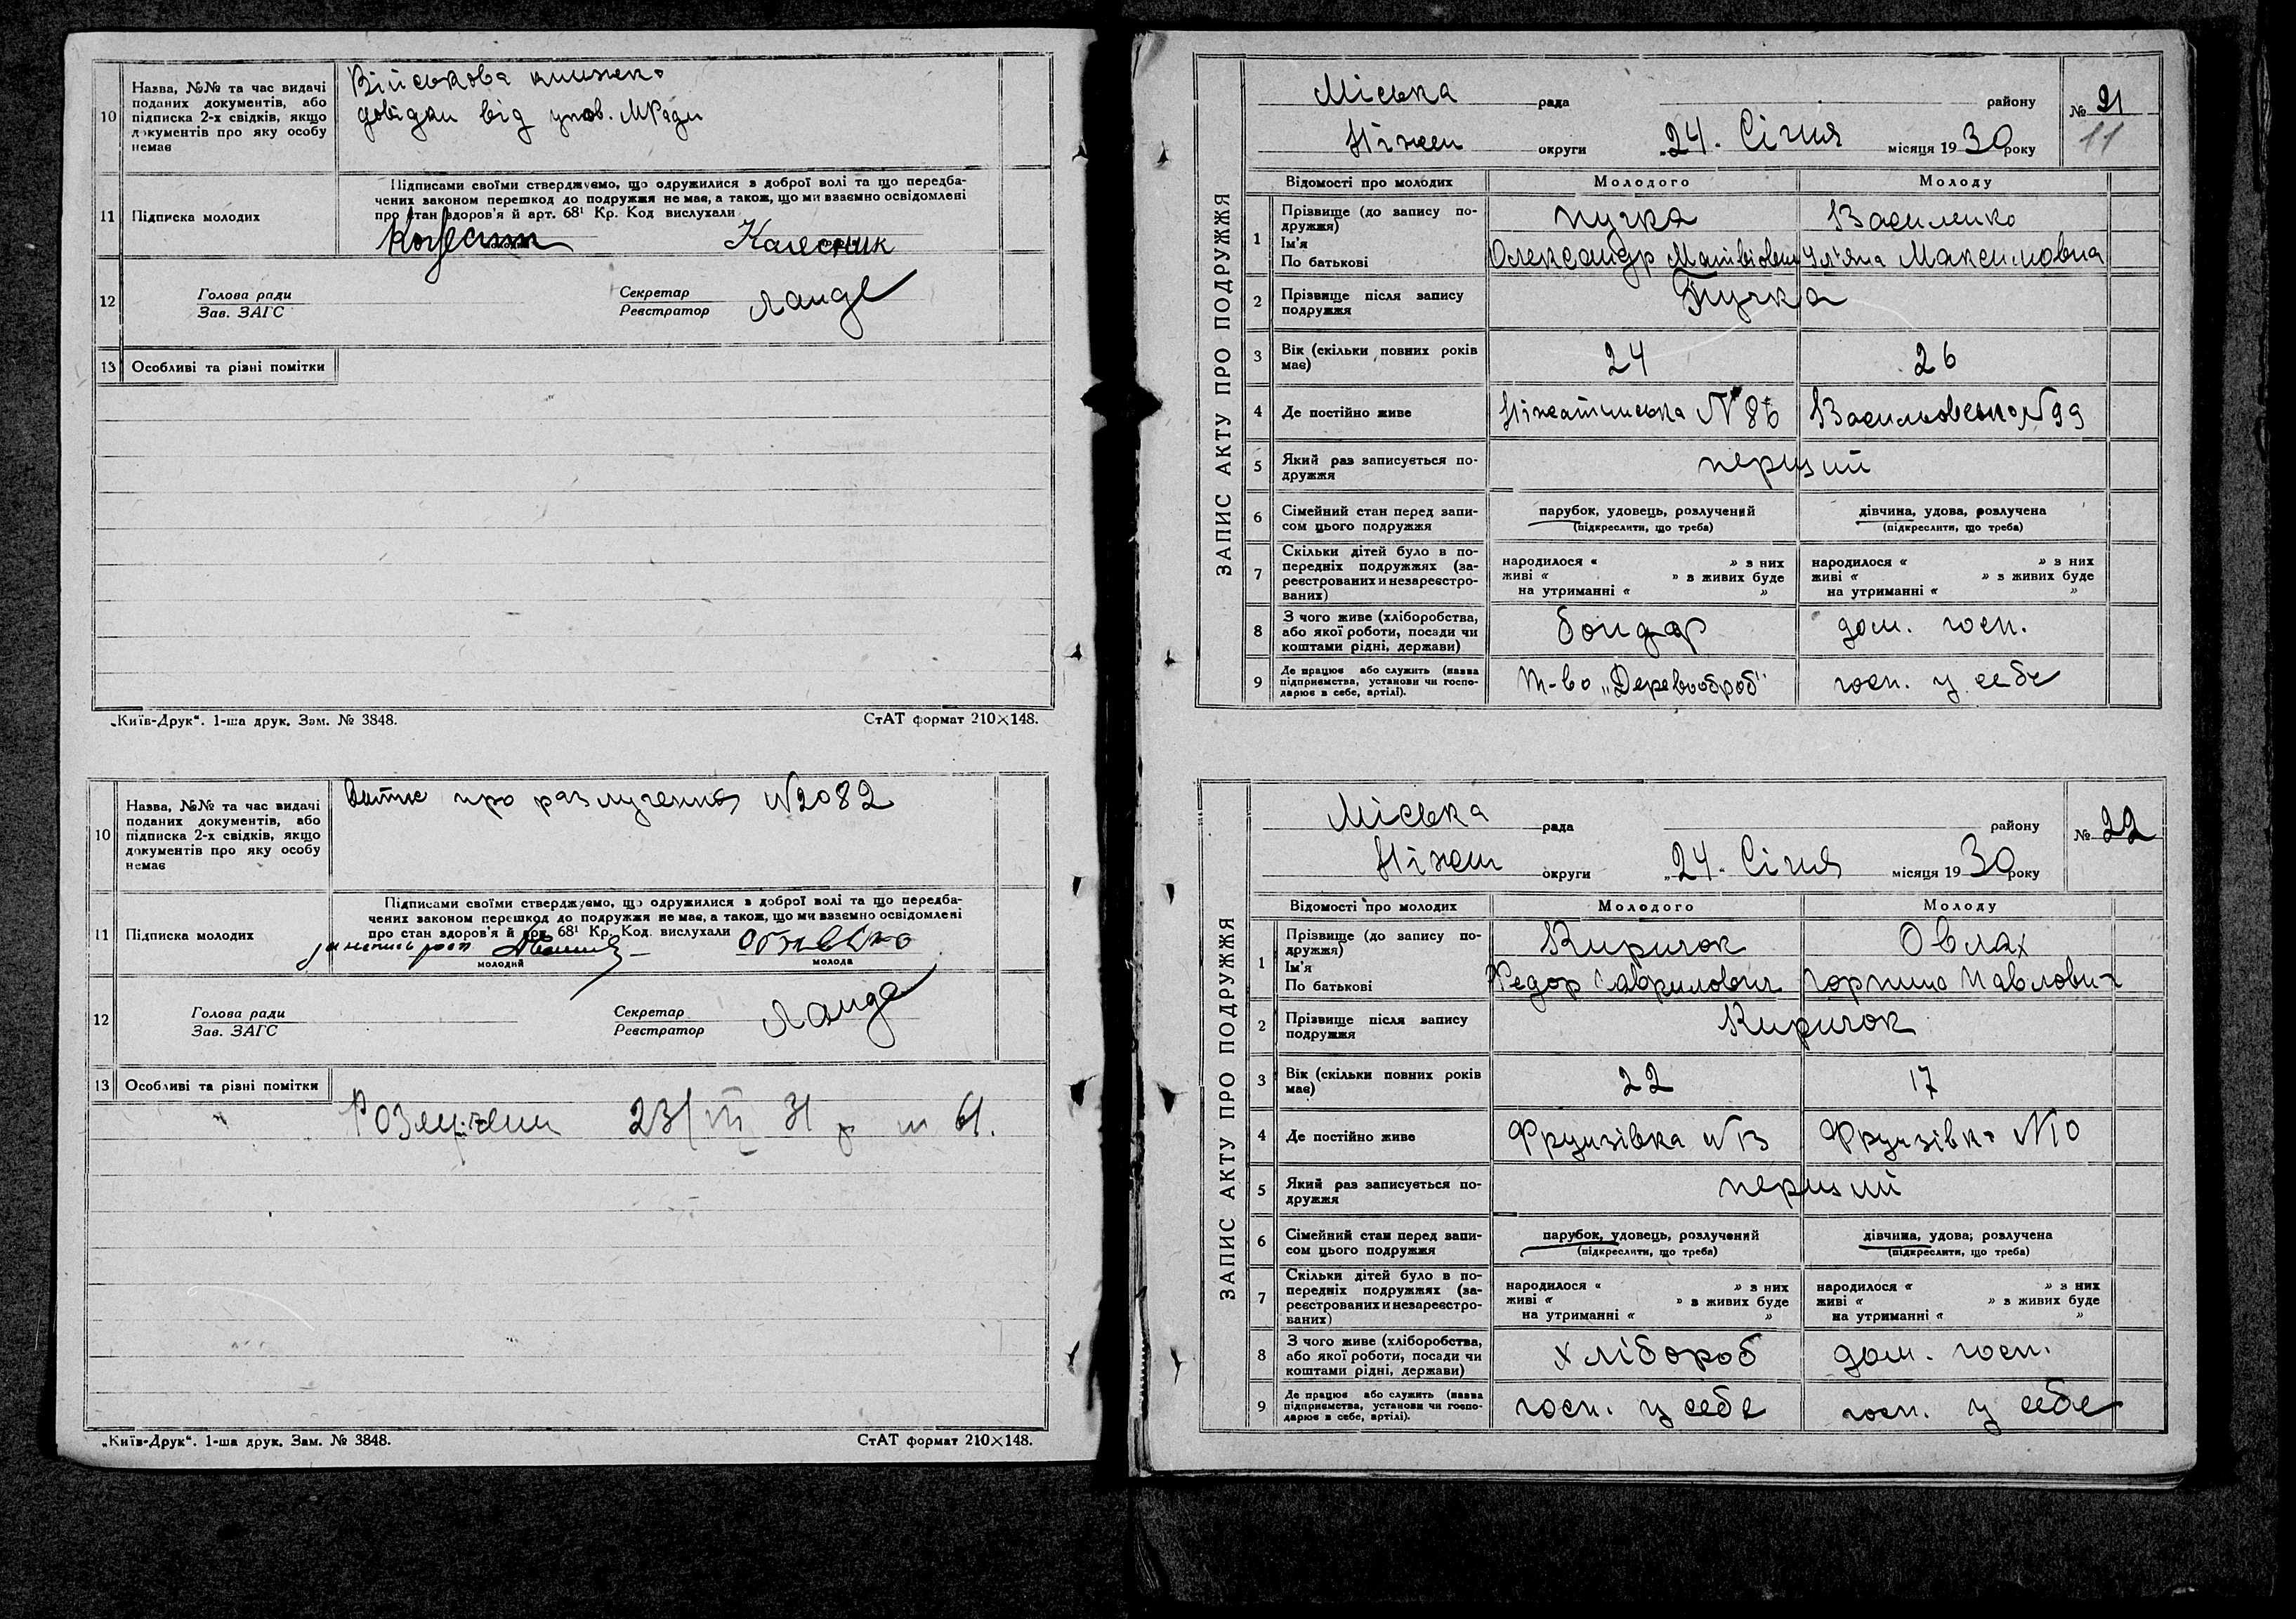 10
Назва, №№ та час видачі
поданих документів, або
підписка 2-х свідків, якщо
документів про яку особу
немає
Військова книжка
довідки від упов. МРади
11
Підписка молодих
Підписами своїми стверджуємо, що одружилися з доброї волі та що передба-
чених законом перешкод до подружжя не має, а також, що ми взаємно освідомлені
про стан здоров'я й арт. 68¹ Кр. Код вислухали
Колесник
Калесник
12
Голова ради
Зав. ЗАГС
Секретар
Реєстратор
Ланде
13
Особливі та різні помітки
„Київ-Друк“. 1-ша друк. Зам. № 3848.
СтАТ формат 210×148.
10
Назва, №№ та час видачі
поданих документів, або
підписка 2-х свідків, якщо
документів про яку особу
немає
Витяг про разлучення №2082
11
Підписка молодих
Підписами своїми стверджуємо, що одружилися з доброї волі та що передба-
чених законом перешкод до подружжя не має, а також, що ми взаємно освідомлені
про стан здоров'я й арт. 68¹ Кр. Код вислухали
молодий
молода
12
Голова ради
Зав. ЗАГС
Секретар
Реєстратор
Ланде
13
Особливі та різні помітки
Розлучени 23/III 31 р № 61.
„Київ-Друк“. 1-ша друк. Зам. № 3848.
СтАТ формат 210×148.
ЗАПИС АКТУ ПРО ПОДРУЖЖЯ
Міська рада району
№ 21
11
Ніжен округи „24. Січня місяця 1930 року
Відомості про молодих
Молодого
Молоду
1
Прізвище (до запису по-
дружжя)
Ім'я
По батькові
Пучка
Олександр Матвіович
Василенко
Ул'яна Максимовна
2
Прізвище після запису
подружжя
Пучка
3
Вік (скільки повних років
має)
24
26
4
Де постійно живе
Ніжатинська № 86
Васильовська № 99
5
Який раз записується по-
дружжя
перший
6
Сімейний стан перед запи-
сом цього подружжя
парубок, удовець, розлучений
(підкреслити, що треба)
дівчина, удова, розлучена
(підкреслити, що треба)
7
Скільки дітей було в по-
передніх подружжях (за-
реєстрованих и незареєстро-
ваних)
народилося « » з них
живі « » з живих буде
на утриманні « »
народилося « » з них
живі « » з живих буде
на утриманні « »
8
З чого живе (хліборобства,
або якої роботи, посади чи
коштами рідні, держави)
бондар
дом. госп.
9
Де працює або служить (назва
підприємства, установи чи госпо-
дарює в себе, артілі).
Т-во „Деревооброб“
госп. у себе
ЗАПИС АКТУ ПРО ПОДРУЖЖЯ
Міська рада району
№ 22
Ніжен округи „24. Січня місяця 1930 року
Відомості про молодих
Молодого
Молоду
1
Прізвище (до запису по-
дружжя)
Ім'я
По батькові
Киричок
Федор Гаврилович
Овлах
Горпина Павлович
2
Прізвище після запису
подружжя
Киричок
3
Вік (скільки повних років
має)
22
17
4
Де постійно живе
Фрунзівка №13
Фрунзівка №10
5
Який раз записується по-
дружжя
перший
6
Сімейний стан перед запи-
сом цього подружжя
парубок, удовець, розлучений
(підкреслити, що треба)
дівчина, удова, розлучена
(підкреслити, що треба)
7
Скільки дітей було в по-
передніх подружжях (за-
реєстрованих и незареєстро-
ваних)
народилося « » з них
живі « » з живих буде
на утриманні « »
народилося « » з них
живі « » з живих буде
на утриманні « »
8
З чого живе (хліборобства,
або якої роботи, посади чи
коштами рідні, держави)
хлібороб
дом. госп.
9
Де працює або служить (назва
підприємства, установи чи госпо-
дарює в себе, артілі).
госп. у себе
госп. у себе